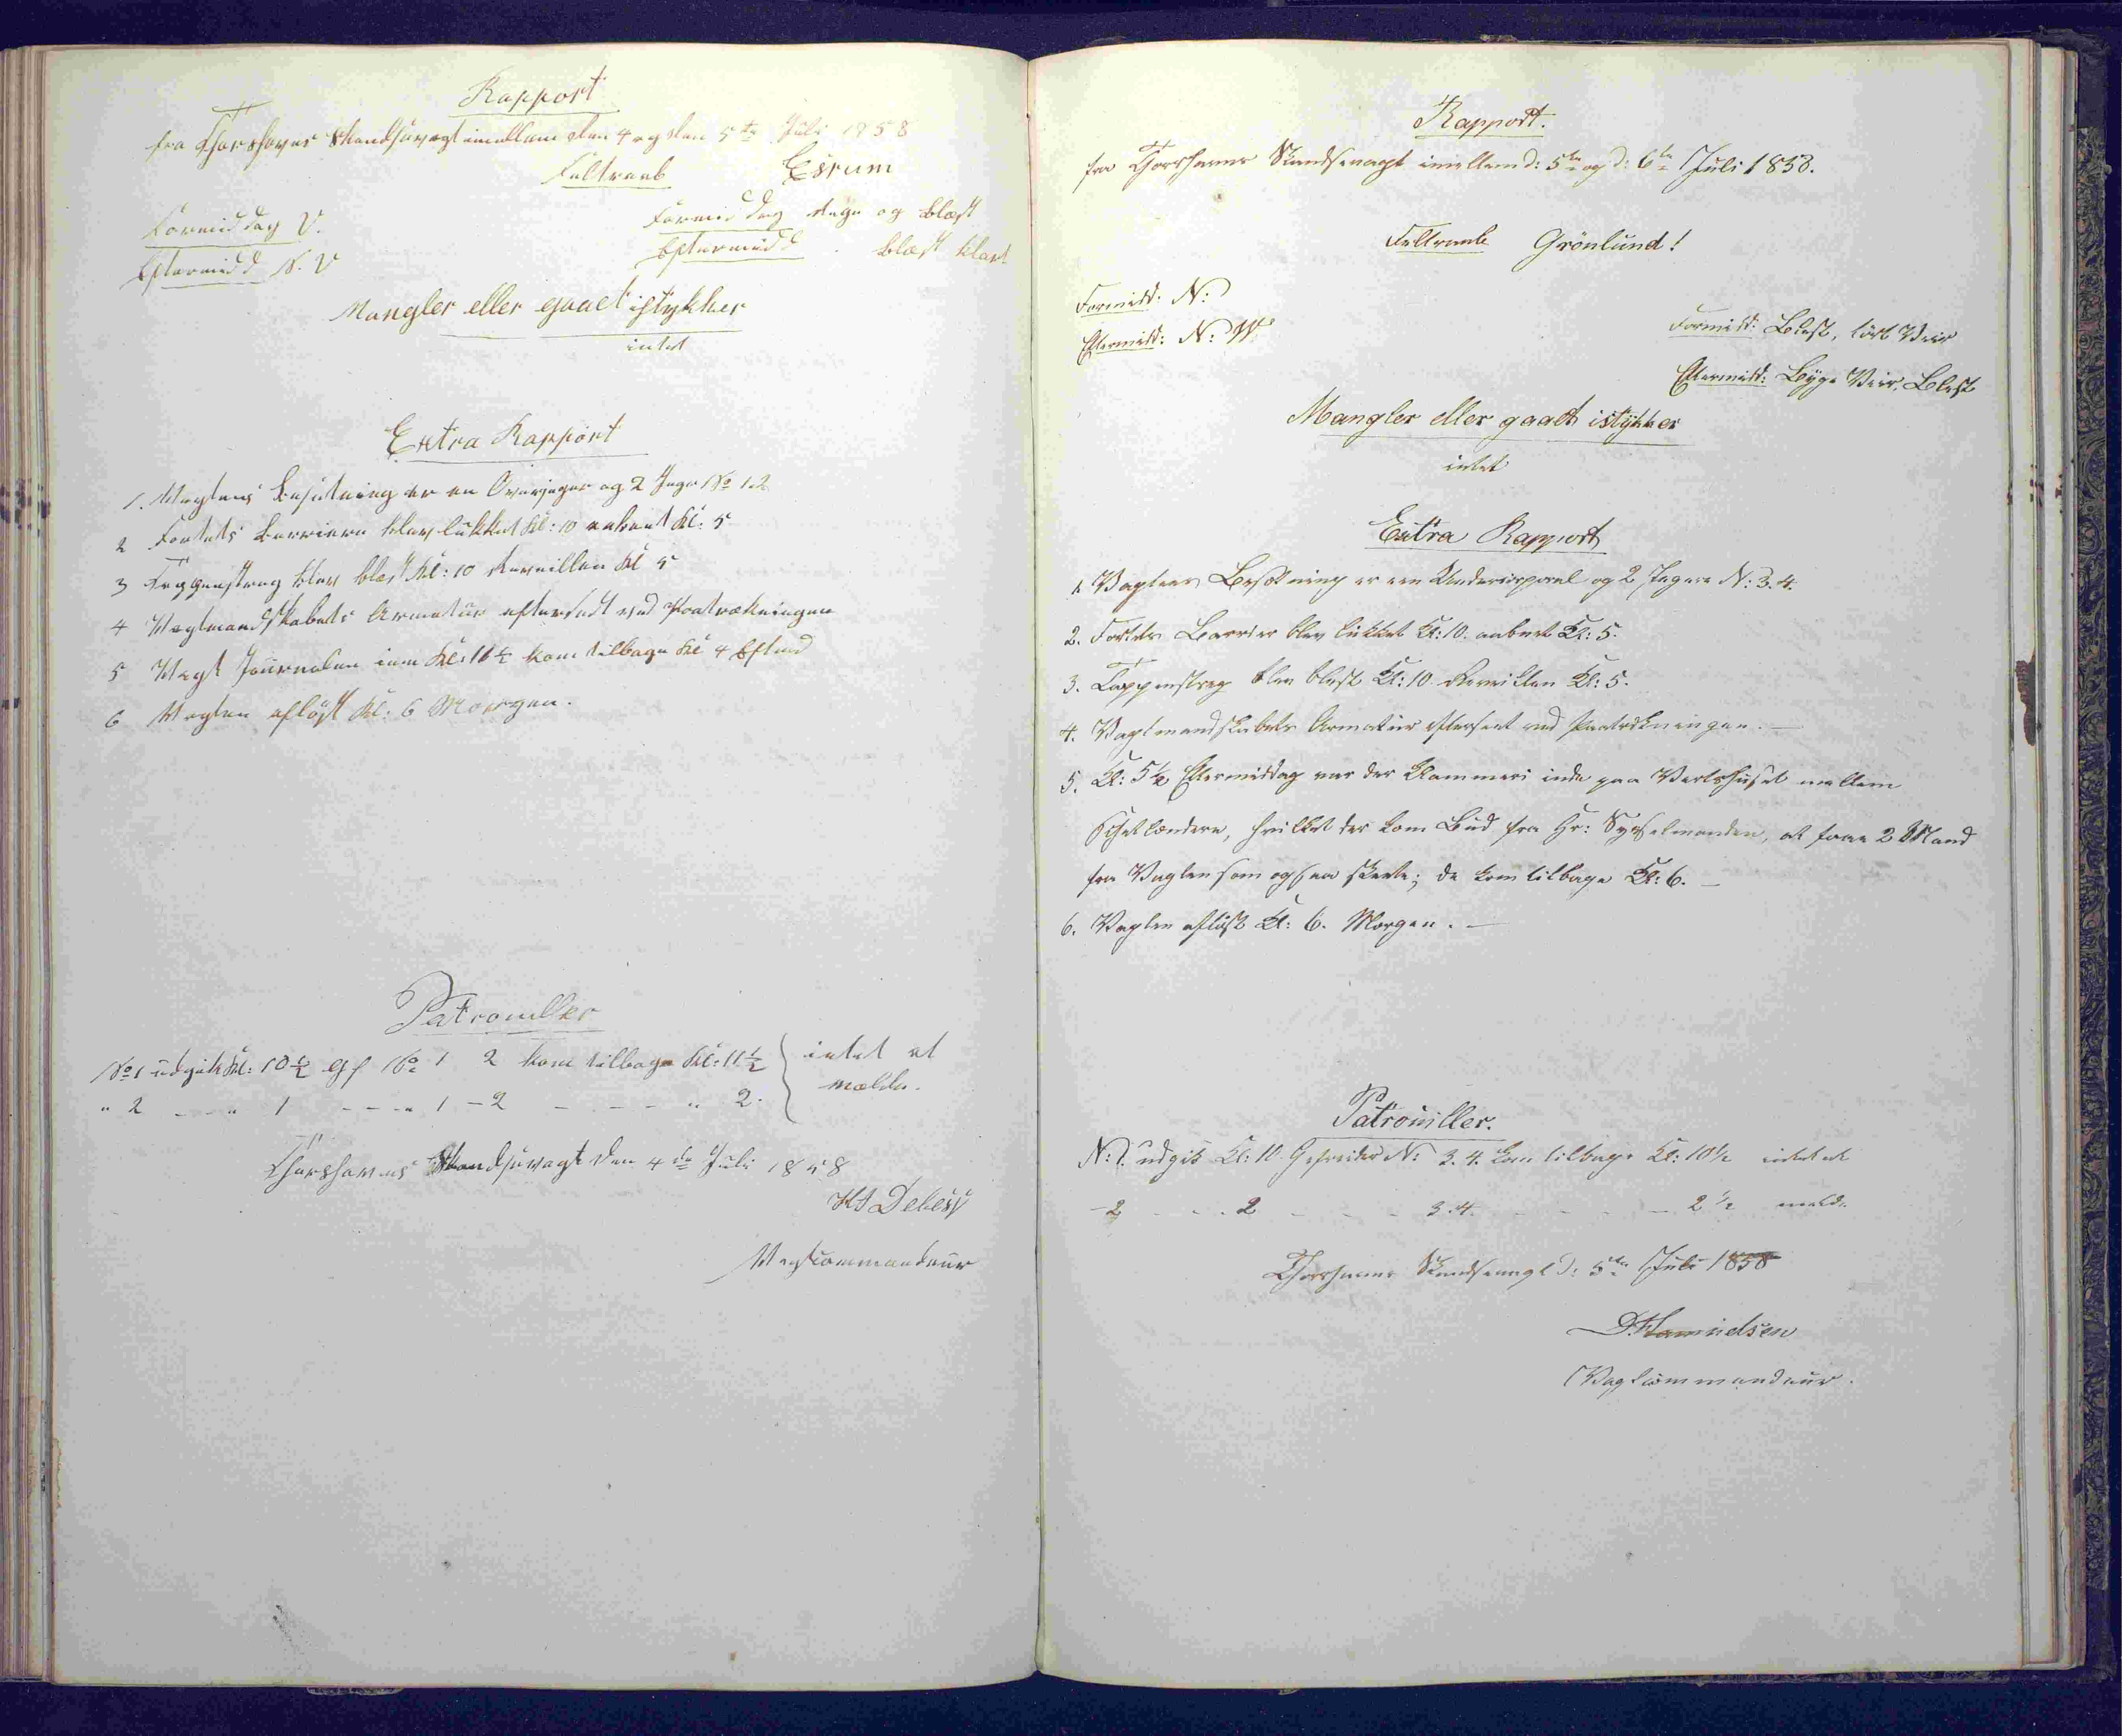 Rapport
fra Thorshavns Skandsevagt imellem den 4 og den 5te Juli 1858
Feltraab Esrum
Formiddag V.
Eftermidd N. V
Formiddag Regn og Blæst
Eftermidd Blæst klart
Mangler eller gaaet istykker
intet
Extra Rapport
1. Vagtens Besætning er en Overjæger og 2 Jægr No 1.2
2 Fortets Barriere blev lukket Kl: 10 aabent Kl: 5
3 Tappenstreg blev blæst Kl: 10 Reveillen Kl 5
4 Vagtmandskabets Armatur efterseet ved Paatrækningen
5 Vagt Journalen ind Kl: 10½ kom tilbage Kl 4 Eftmd
6 Vagten afløst Kl: 6 Morgen.
Patrouiller
No 1 udgik Kl: 10½ Gf No 1 2 kom tilbage Kl: 11½ intet at
" 2 - - " 1 - - - " 1 - 2 - - - - " 2. melde.
Thorshavns Skandsevagt den 4de Juli 1858
Debess
Vagtcommandeur
Rapport.
fra Thorshavns Skandsevagt imellem d: 5te og d: 6te Juli 1858.
Feltraab Grönlund!
Formidd: N:
Eftermidd: N: W
Formidd: Blæst, tört Veir
Eftermidd: Byge Veir, Blæst
Mangler eller gaaet istykker
intet
Extra Rapport
1. Vagtens Besætning er en Undercorporal og 2 Jægere N: 3.4.
2. Fortets Barrier blev lukket Kl: 10. aabnet Kl: 5.
3. Tappenstreg blev blæst Kl: 10. Reveillen Kl: 5.
4. Vagtmandskabets Armatur efterseet ved Paatrækningen. —
5. Kl: 5½ Eftermiddag var der Klammeri inde paa Vertshuset mellem
Schetlændere, hvilket der kom Bud fra Hr: Sysselmanden, at faae 2 Mand
fra Vagten som ogsaa skeete; de kom tilbage Kl: 6. —
6. Vagten aflöst Kl: 6. Morgen. —
Patrouiller.
N: 1. udgik Kl: 10. Gefreider N: 3.4. kom tilbage Kl: 10½ intet at
- 2 - - . 2 - - - 3.4. - - - - 2½ meld.
Thorshavns Skandsevagt d: 5te Juli 1858
Vagtcommandeur.